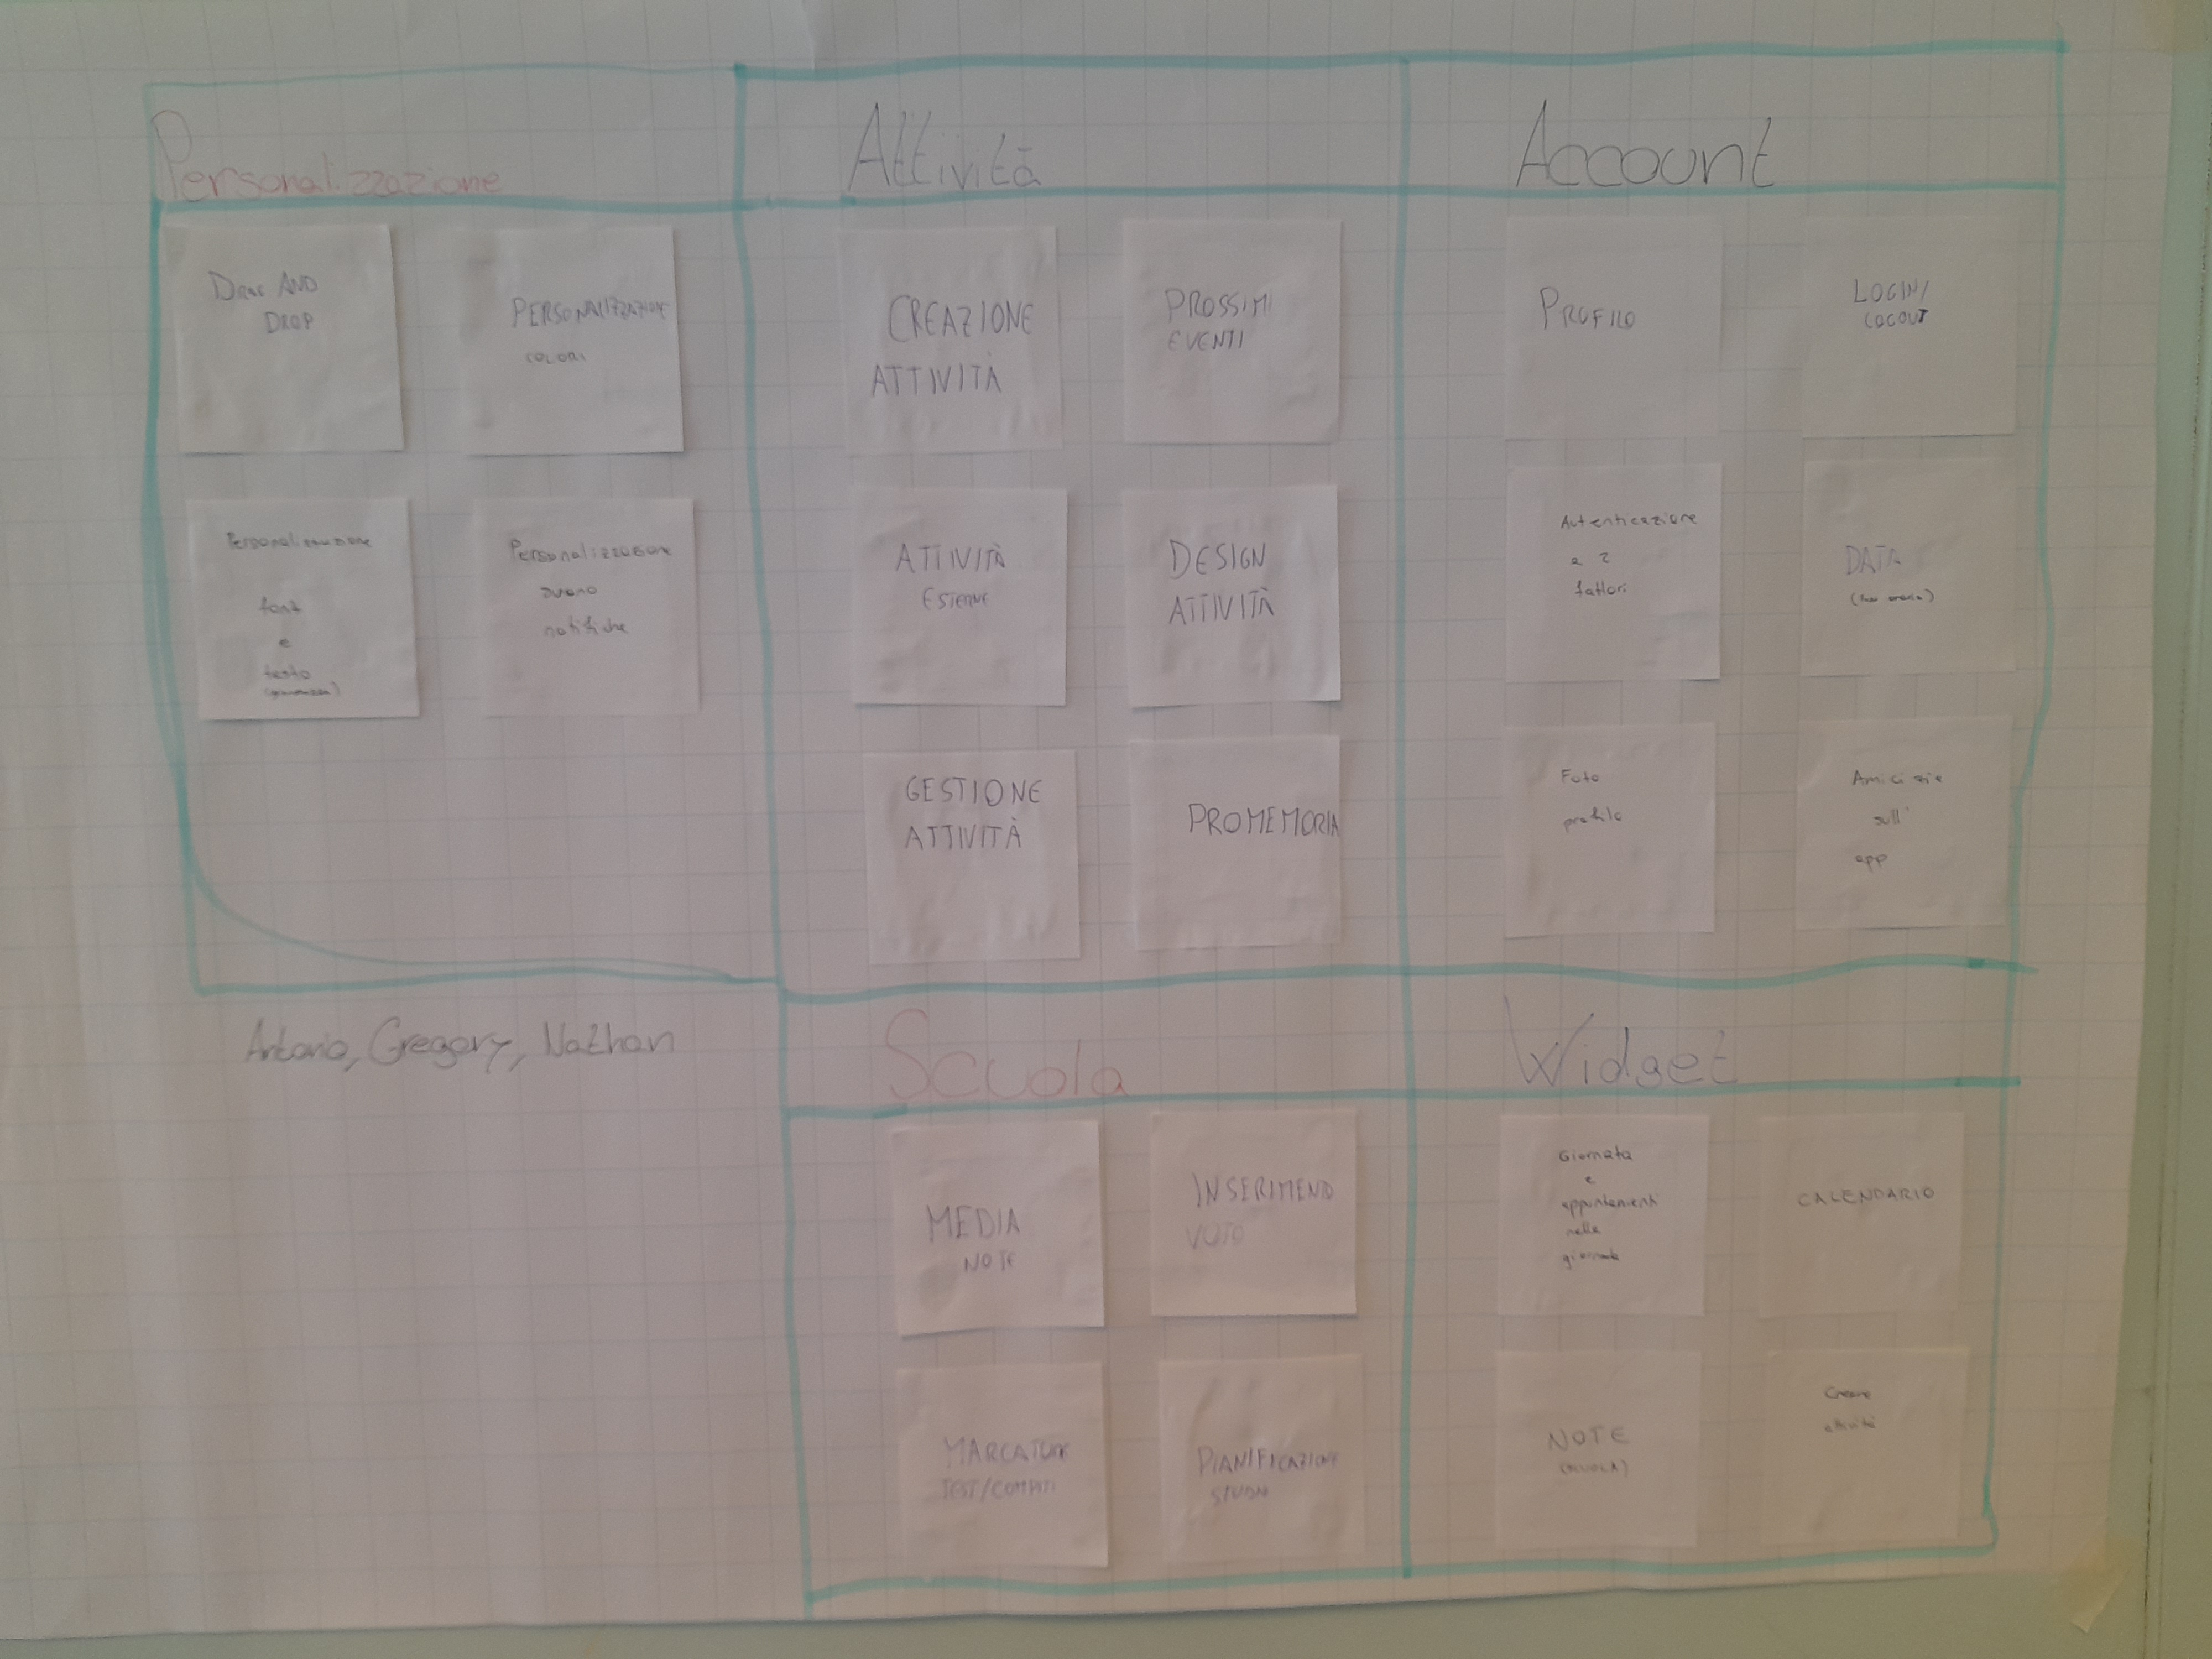 Personalizzazione
DRAG AND
DROP
PERSONALIZZAZIONE
COLORI
Personalizzazione
font
e
testo
Personalizzazione
suono
notifiche
Attività
CREAZIONE
ATTIVITÀ
PROSSIMI
EVENTI
ATTIVITÀ
ESTERNE
DESIGN
ATTIVITÀ
GESTIONE
ATTIVITÀ
PROMEMORIA
Account
PROFILO
LOGIN/
LOGOUT
Autenticazione
a 2
fattori
DATA
Foto
profilo
Amicizie
sull'
app
Antonio, Gregory, Nathan
Scuola
MEDIA
NOTE
INSERIMENTO
VOTO
MARCATURE
TEST/COMPITI
PIANIFICAZIONE
STUDIO
Widget
Giornata
e
appuntamenti
nella
giornata
CALENDARIO
NOTE
(SCUOLA)
Creare
attività